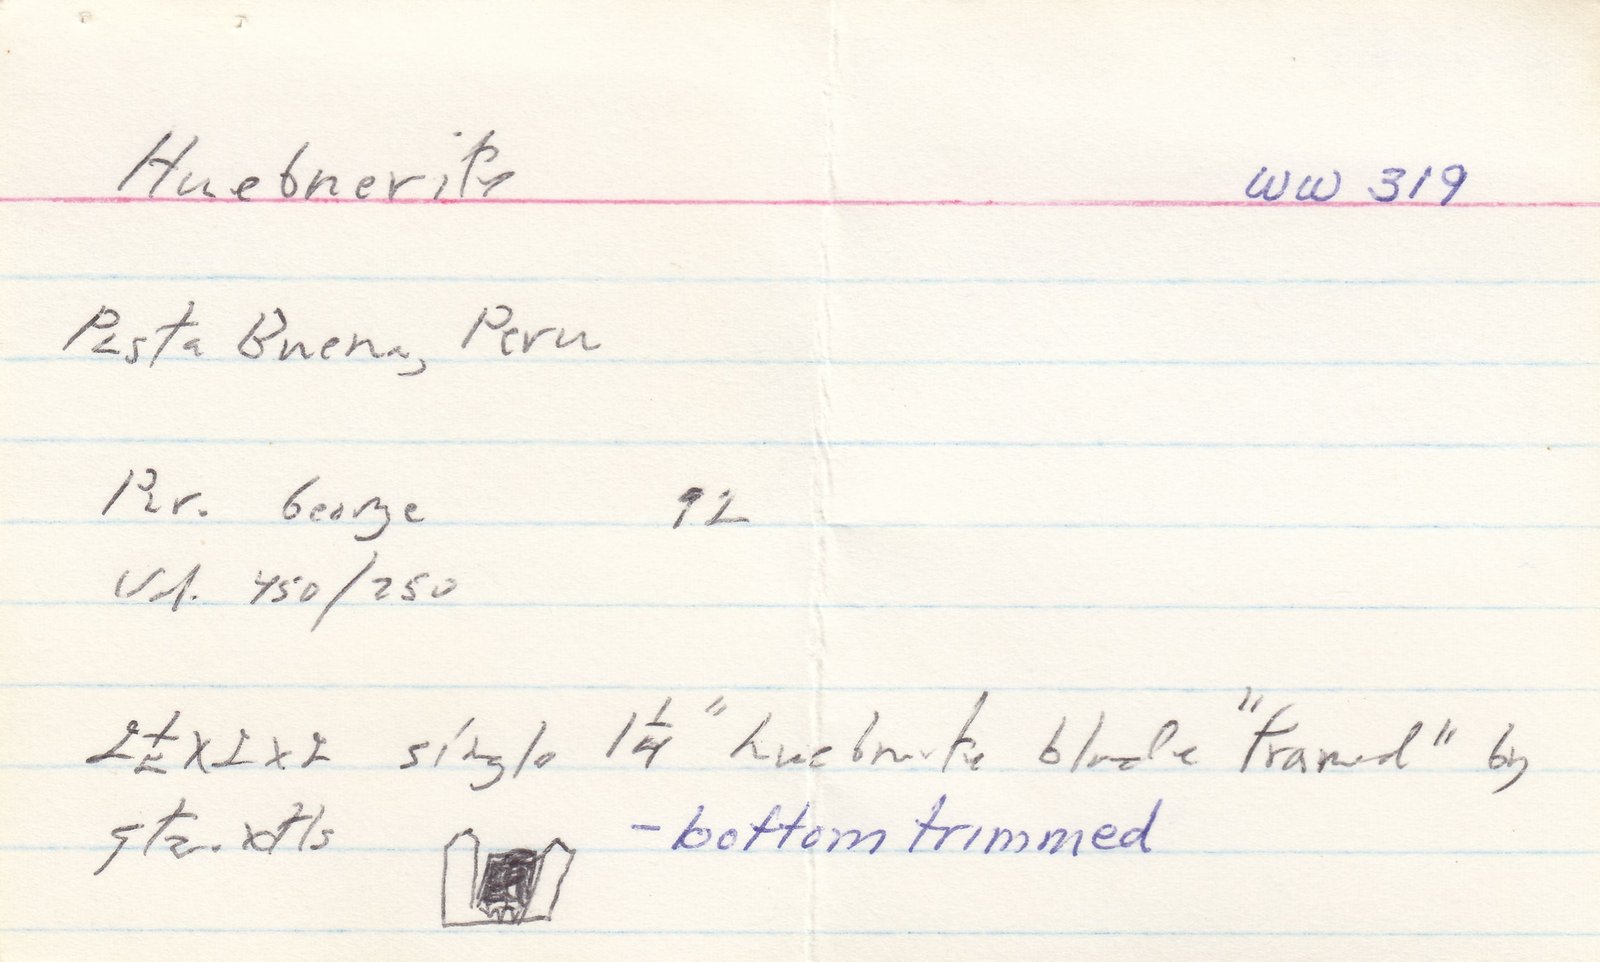 Huebnerite WW 319
Pasta Buena, Peru
Pur. George 92
Val. 450/250
2½x2x2 single 1¼" huebnerite blade "framed" by
qtz. xtls -bottom trimmed